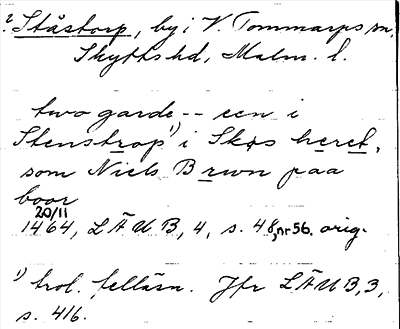 ? Ståstorp, by i V. Tommarps sn,
Skytts hd, Malm. l.
two garde -- een i
Stenstrop¹⁾ i Skøs heret,
som Niels Brwn paa
boor
20/11
1464, LÄUB, 4, s. 48, nr 56. orig.
¹⁾ trol. felläsn. Jfr LÄUB, 3,
s. 416.